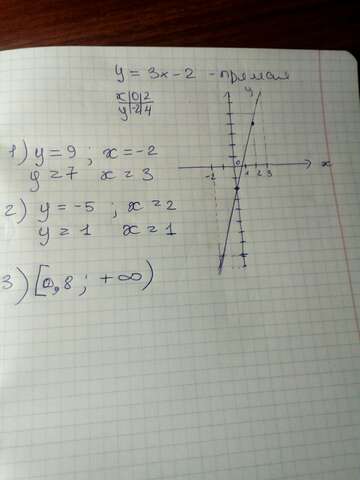 y = 3x - 2 - прямая
x | 0 | 2
y | -2 | 4
1) y = 9 ; x = -2
y = 7 x = 3
2) y = -5 ; x = 2
y = 1 x = 1
3) [0,8 ; +∞)
y
-2 0 1 2 3 x